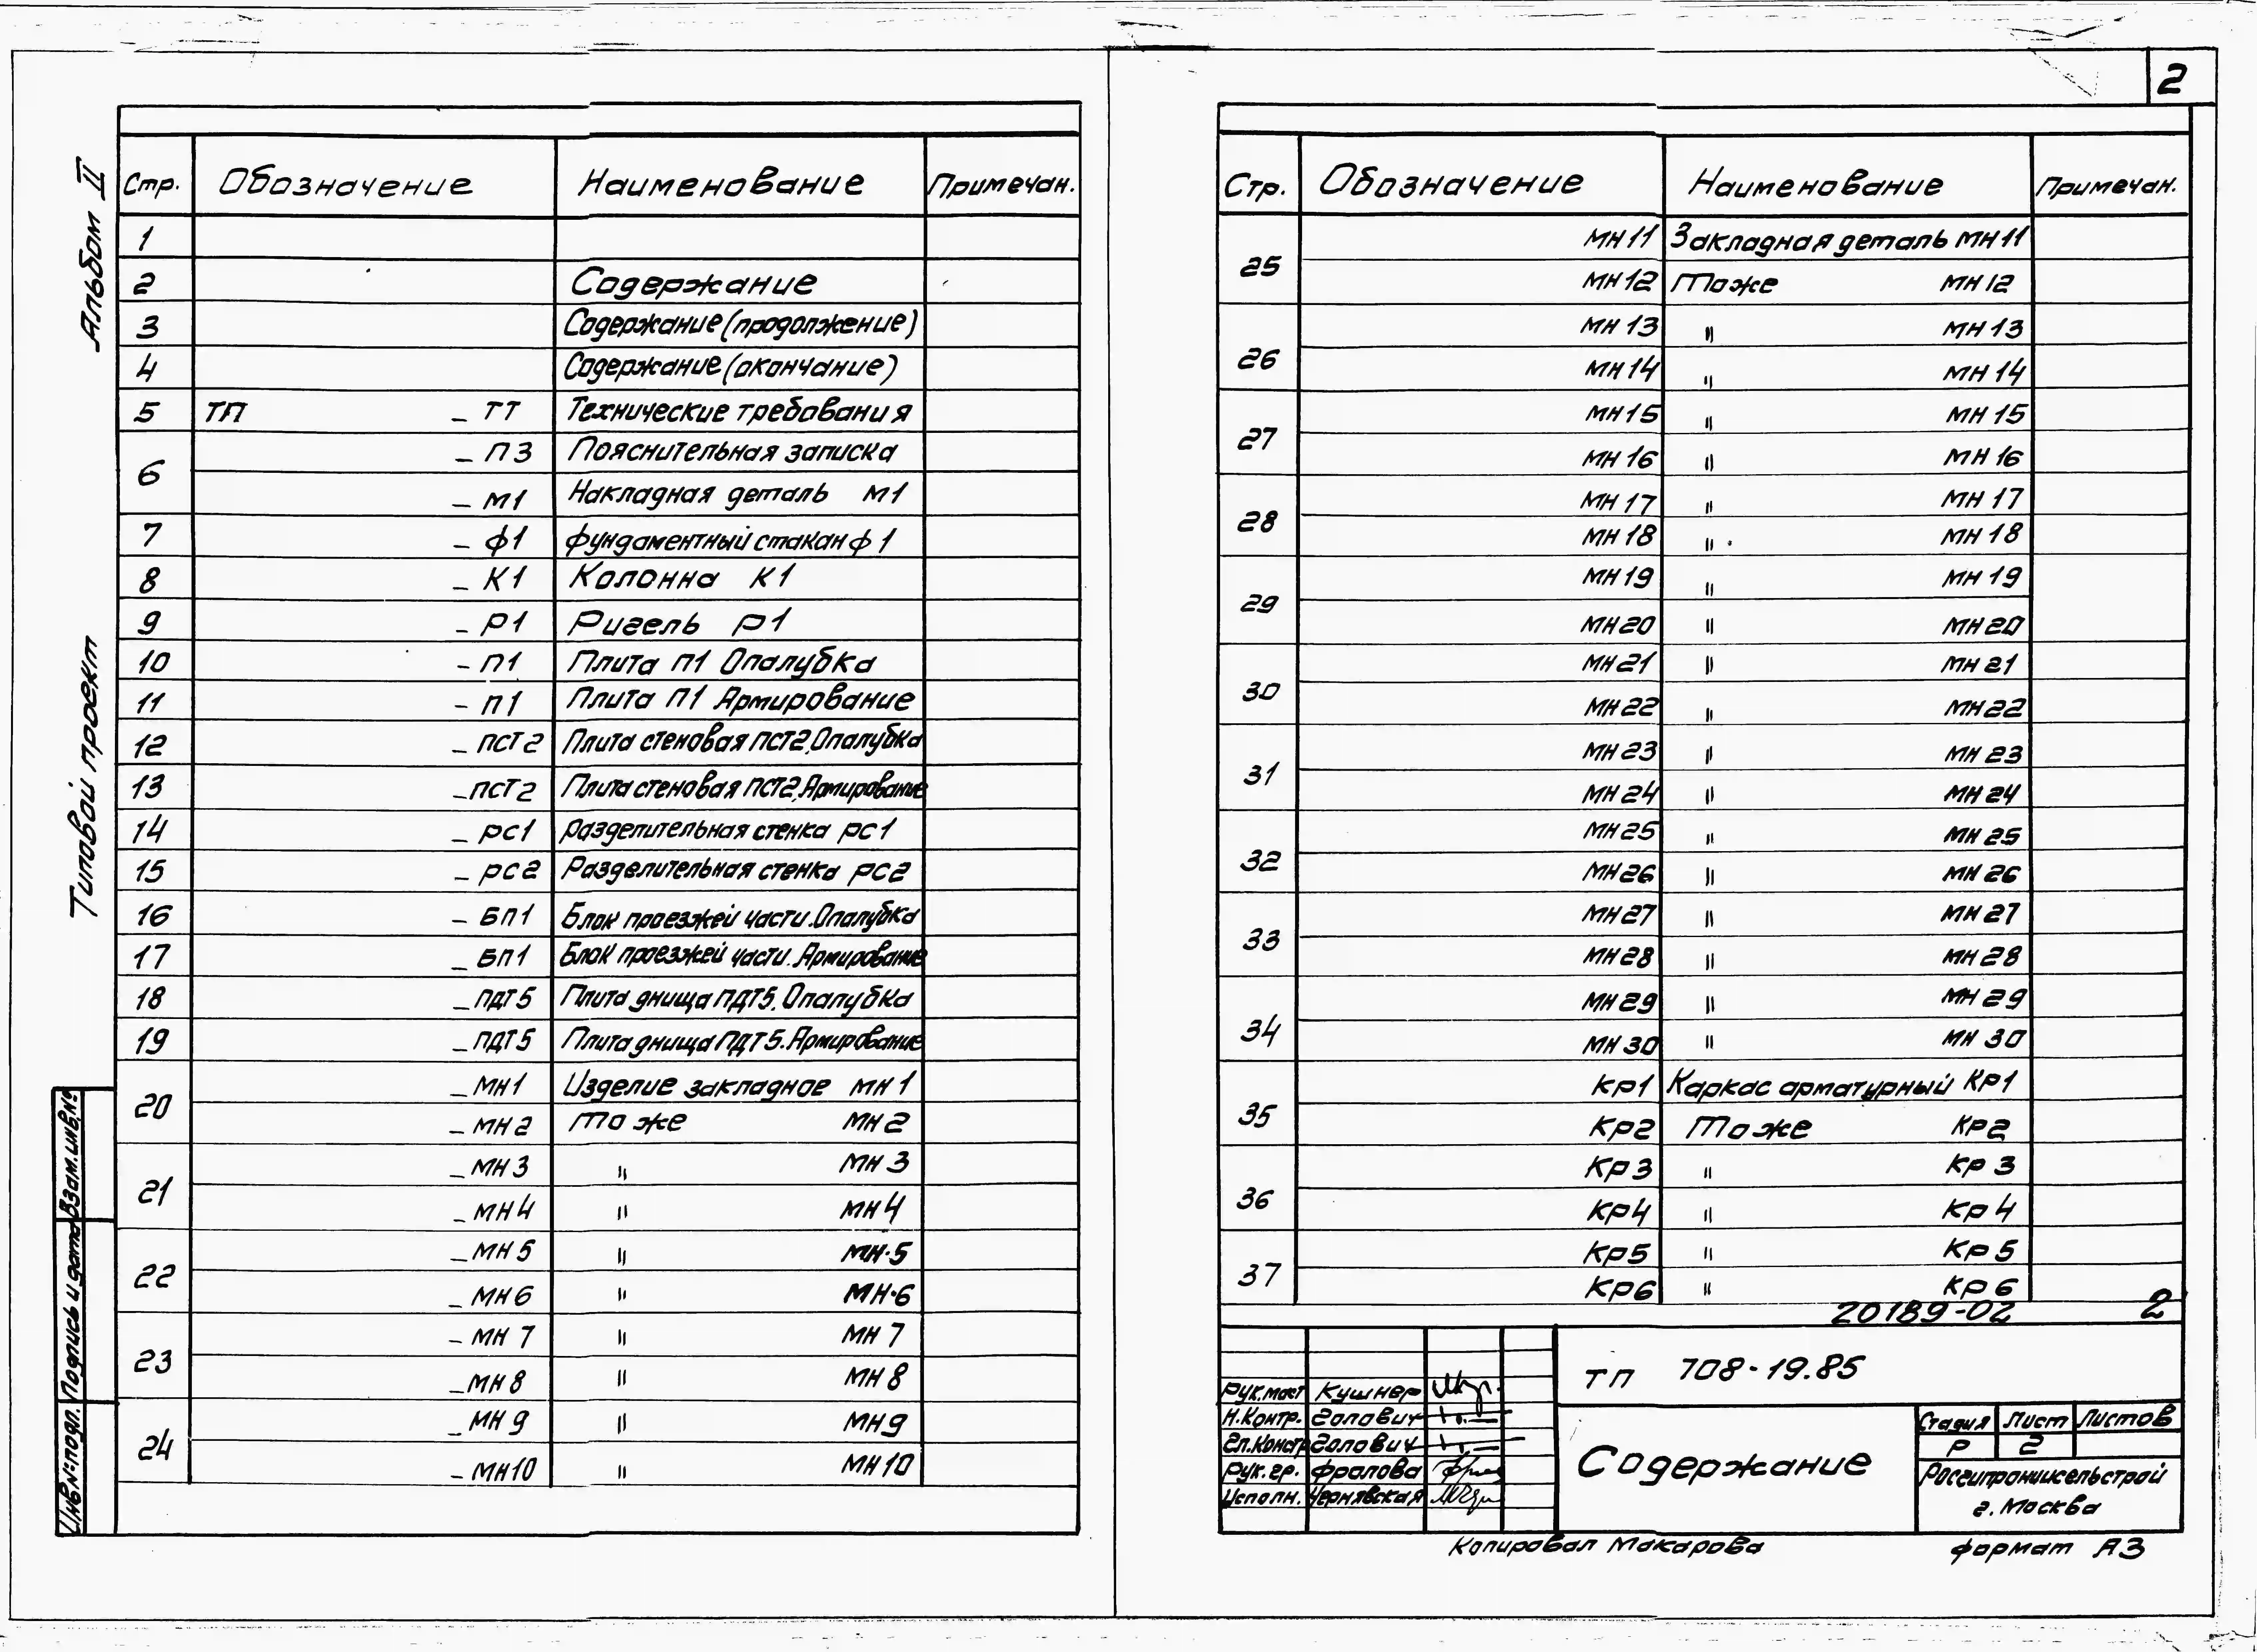 2
Альбом II
Типовой проект
Взам.инв.№
Подпись и дата
Инв.№подл.
Стр. Обозначение Наименование Примечан.
1
2 Содержание
3 Содержание (продолжение)
4 Содержание (окончание)
5 ТП – ТТ Технические требования
6 – ПЗ Пояснительная записка
– М1 Накладная деталь М1
7 – Ф1 Фундаментный стакан Ф1
8 – К1 Колонна К1
9 – Р1 Ригель Р1
10 – П1 Плита П1 Опалубка
11 – П1 Плита П1 Армирование
12 – ПСТ2 Плита стеновая ПСТ2. Опалубка
13 – ПСТ2 Плита стеновая ПСТ2. Армирование
14 – РС1 Разделительная стенка РС1
15 – РС2 Разделительная стенка РС2
16 – БП1 Блок проезжей части. Опалубка
17 – БП1 Блок проезжей части. Армирование
18 – ПДТ5 Плита днища ПДТ5. Опалубка
19 – ПДТ5 Плита днища ПДТ5. Армирование
20 – МН1 Изделие закладное МН1
– МН2 То же МН2
21 – МН3 " МН3
– МН4 " МН4
22 – МН5 " МН·5
– МН6 " МН·6
23 – МН7 " МН7
– МН8 " МН8
24 – МН9 " МН9
– МН10 " МН10
Стр. Обозначение Наименование Примечан.
25 МН11 Закладная деталь МН11
МН12 То же МН12
26 МН13 " МН13
МН14 " МН14
27 МН15 " МН15
МН16 " МН16
28 МН17 " МН17
МН18 " МН18
29 МН19 " МН19
МН20 " МН20
30 МН21 " МН21
МН22 " МН22
31 МН23 " МН23
МН24 " МН24
32 МН25 " МН25
МН26 " МН26
33 МН27 " МН27
МН28 " МН28
34 МН29 " МН29
МН30 " МН30
35 КР1 Каркас арматурный КР1
КР2 То же КР2
36 КР3 " КР3
КР4 " КР4
37 КР5 " КР5
КР6 " КР6
20189-02 2
ТП 708-19.85
Рук.маст Кушнер
Н.Контр. Голович
Гл.Констр Голович
Рук.гр. Фролова
Исполн. Чернявская
Содержание
Стадия Лист Листов
Р 2
Росгипрониисельстрой
г. Москва
Копировал Макарова
Формат А3